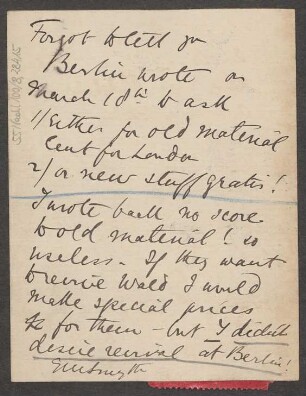 Forgot to tell you
Berlin wrote on
March 18th to ask
1/ Either for old material
lent for London
2/ or new stuff gratis!
I wrote back no score
to old material! so
useless. If they want
to revive Wald I would
make special prices
for them – but I didn't
desire revival at Berlin!
EMSmyth